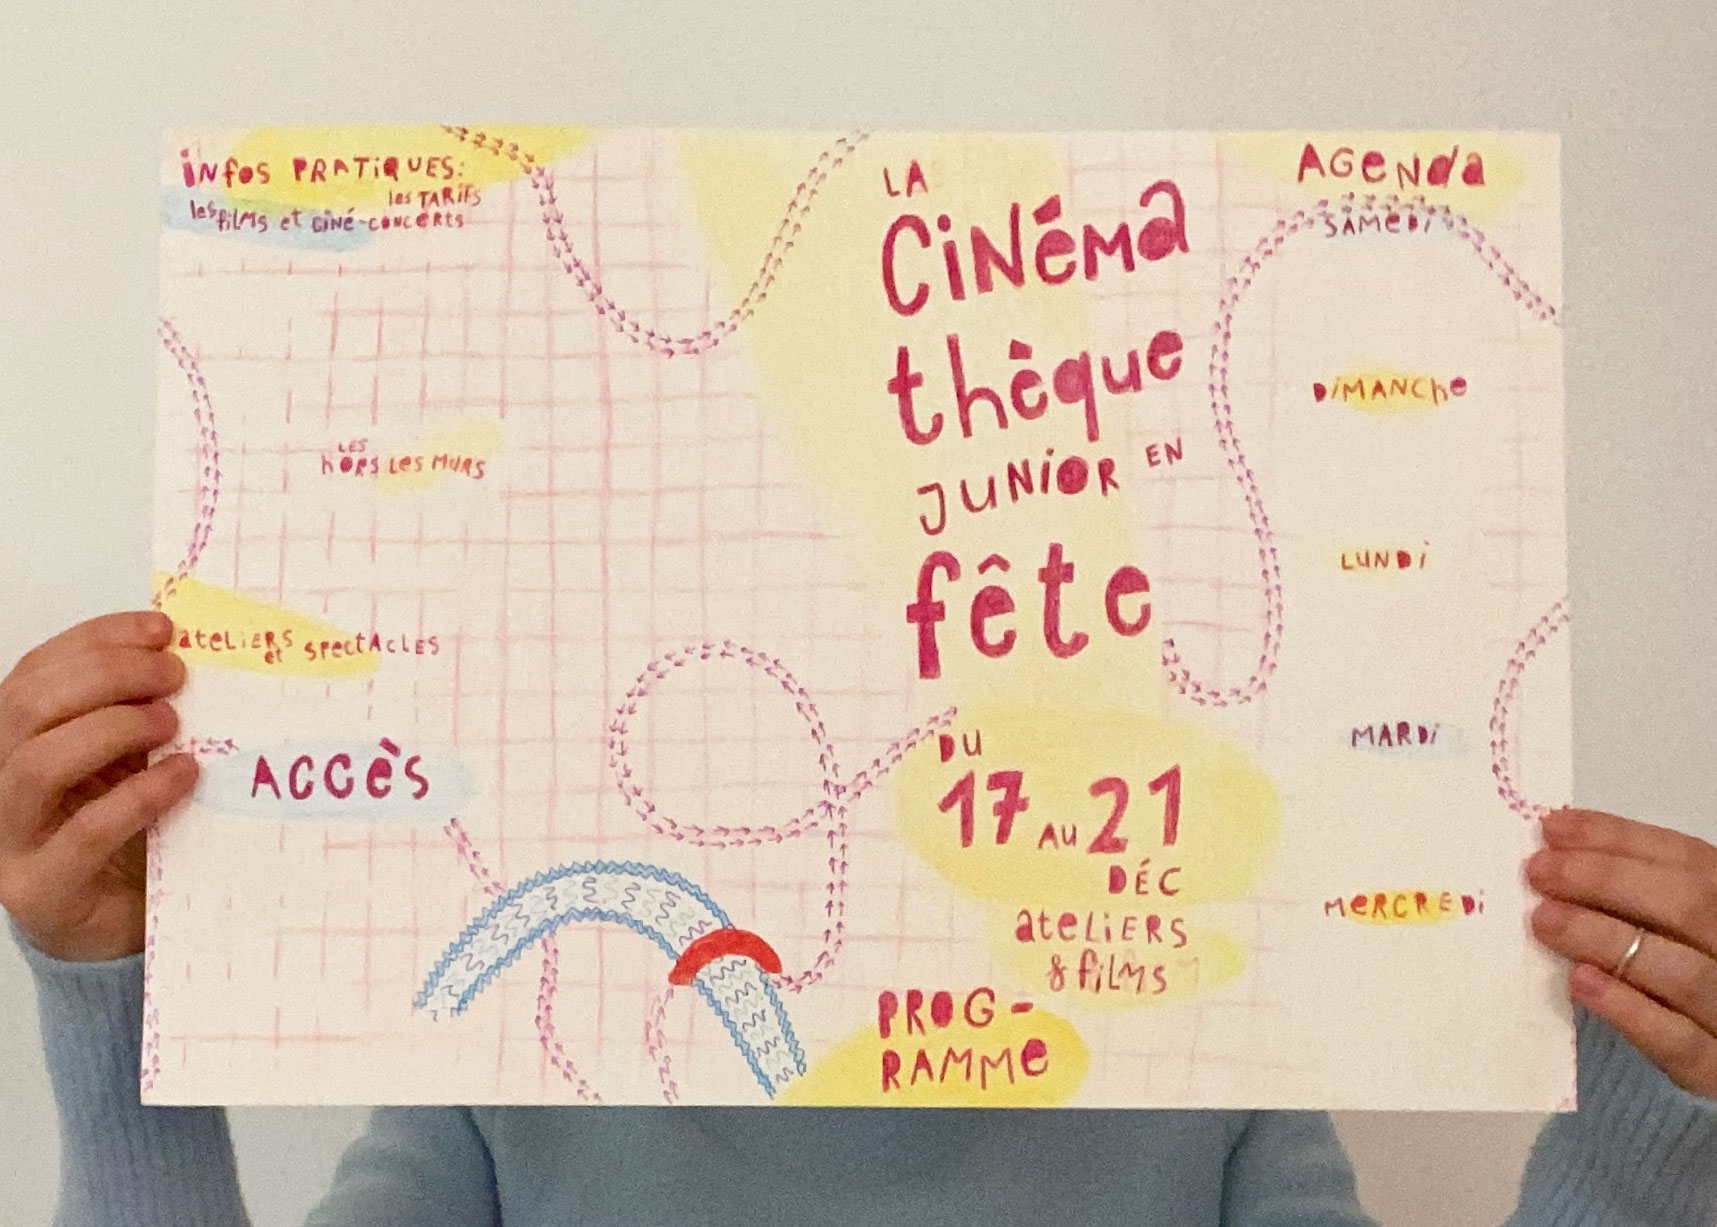 infos PRATIQUES:
les TARIFS
les films et ciné-concerts
LES
hors les murs
ateliers et spectacles
Accès
LA
Cinéma
thèque
junior en
fête
DU
17 AU 21
DÉC
ateliers
& films
PROG-
RAMME
AGENDA
SAMEDI
DIMANCHE
LUNDI
MARDI
MERCREDI